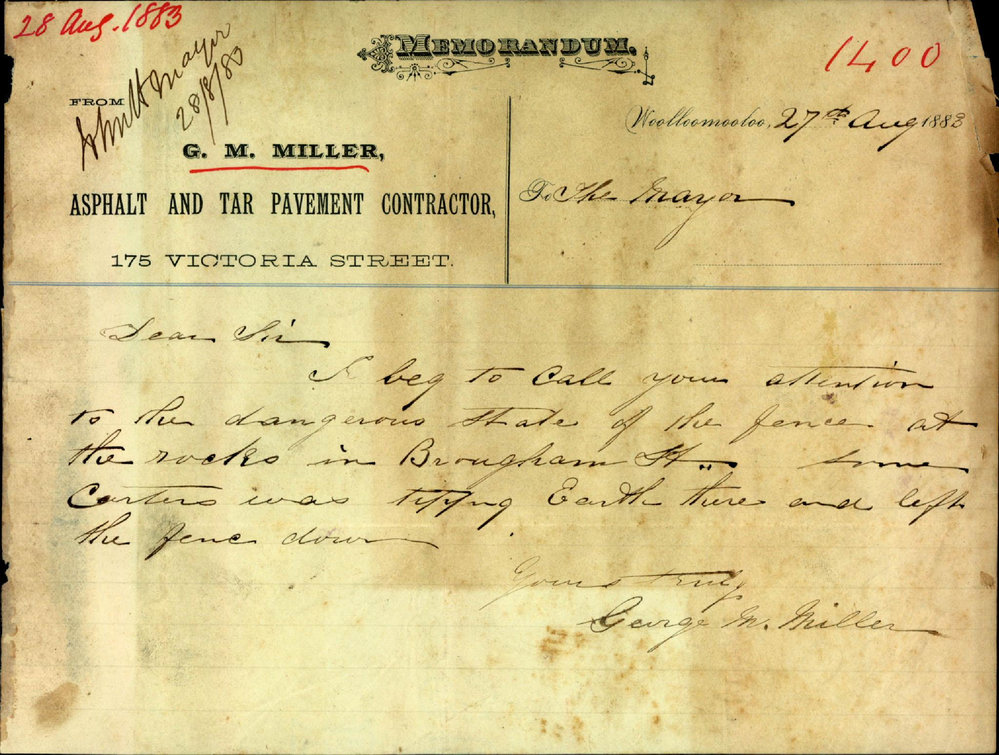 28 Aug. 1883
MEMORANDUM.
1400
Mayor
28/8/83
FROM
G. M. MILLER,
ASPHALT AND TAR PAVEMENT CONTRACTOR,
175 VICTORIA STREET.
Woolloomooloo, 27th Aug 1883
To The Mayor
Dear Sir
I beg to Call your attention
to the dangerous State of the fence at
the rocks in Brougham St.. some
Carters was tipping Earth there and left
the fenc down
Yours truly
George M. Miller